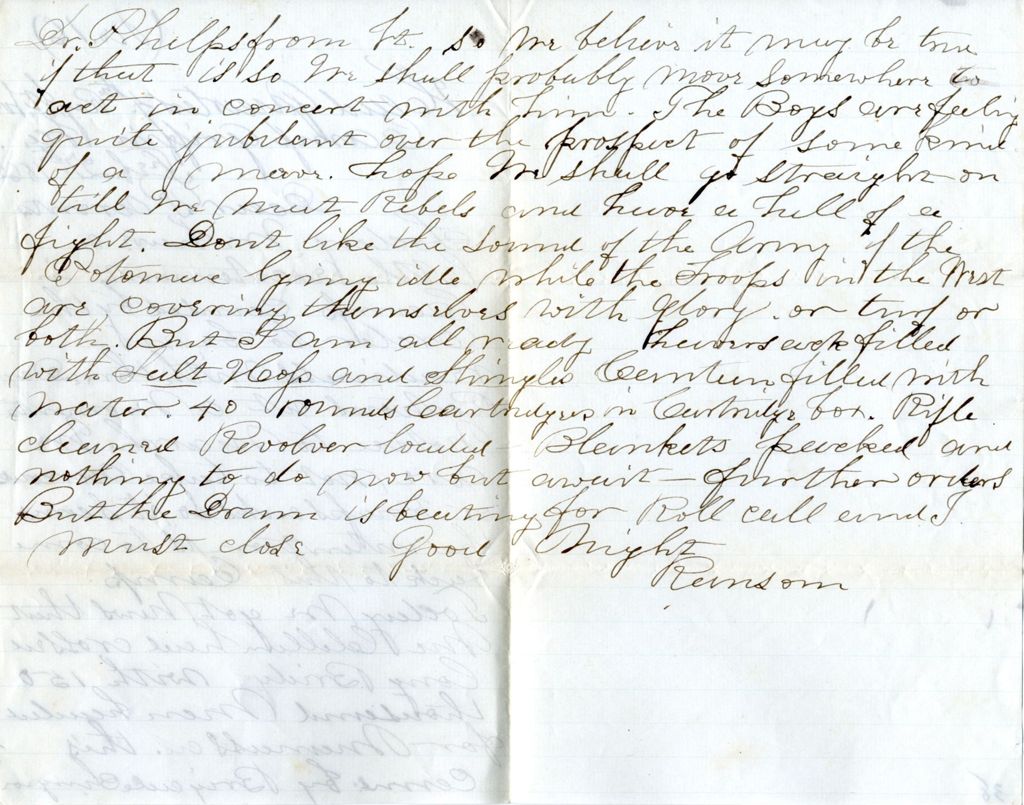 Dr. Phelps from Vt. so We believe it may be true
if that is so We shall probably move Somewhere to
act in concert with him. The Boys are feeling
quite jubilant over the prospect of some kind
of a move. hope We shall go straight on
till We Meet Rebels and have a hell of a
fight. Dont like the sound of the Army of the
Potomac lying idle while the troops in the West
are covering themselves with glory. or turf or
both. But I am all ready haversack filled
with Salt Hoss and Shingles Canteen filled with
Water. 40 rounds Cartridges in Cartridge box. Rifle
cleaned Revolver loaded Blankets packed and
nothing to do now but await — further orders
But the Drum is beating for Roll call and I
Must close Good Night
Ransom